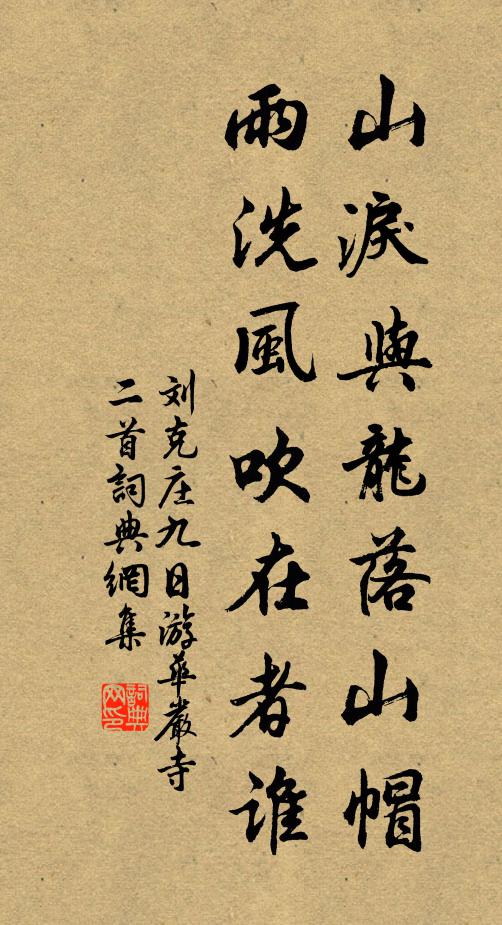 山淚與龍落山帽
雨洗風吹在者誰
刘克庄九日游華嚴寺
二首詞典網集
詞典
网印